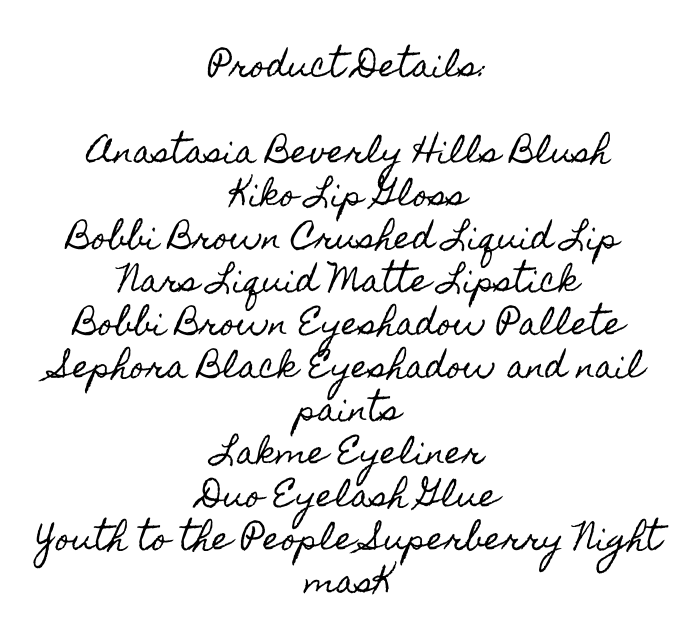 Product Details:
Anastasia Beverly Hills Blush
Kiko Lip Gloss
Bobbi Brown Crushed Liquid Lip
Nars Liquid Matte Lipstick
Bobbi Brown Eyeshadow Pallete
Sephora Black Eyeshadow and nail
paints
Lakme Eyeliner
Duo Eyelash Glue
Youth to the People Superberry Night
mask